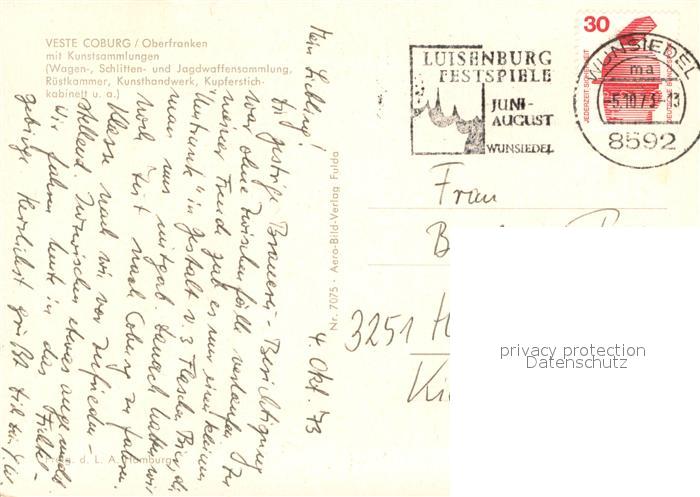 VESTE COBURG / Oberfranken
mit Kunstsammlungen
(Wagen-, Schlitten- und Jagdwaffensammlung,
Rüstkammer, Kunsthandwerk, Kupferstich-
kabinett u. a.)
4. Okt. 73
Mein Liebling!
Die gestrige Brauerei-Besichtigung
war ohne Zwischenfälle verlaufen. Zu
meiner Freud gab es nur einen kleinen
Umtrunk in Gestalt v. 3 Flaschen Bier, die
man uns mitgab. Danach hatten wir
noch Zeit nach Coburg zu fahren.
Klasse nach wie vor zufrieden-
stellend. Inzwischen etwas aufgemuckt.
Wir fahren heute in das Fichtel-
gebirge. Herzlichst grüßt
Nr. 7075 · Aero-Bild-Verlag Fulda
Frg. d. L. A. Hamburg
LUISENBURG
FESTSPIELE
JUNI-
AUGUST
WUNSIEDEL
30
JEDERZEIT SICHERHEIT
DEUTSCHE BUNDESPOST
WUNSIEDEL
ma
-5.10.73-13
8592
Frau
B
3251 H
Ki
privacy protection
Datenschutz